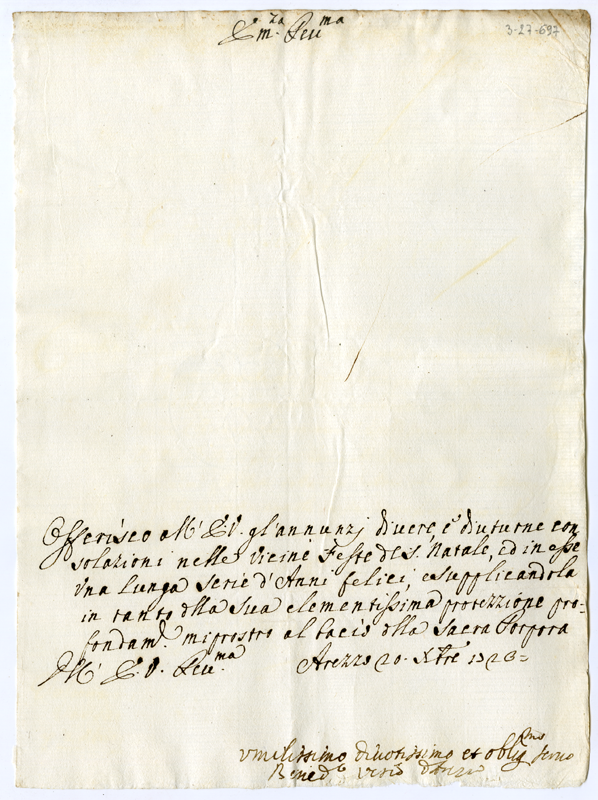 Em.za Reu.ma
3-27-697
Offerisco all' E.V. gl'annunzj di uere, e diuturne con
solazioni nelle vicine Feste del S. Natale, ed in esse
vna Lunga Serie d'Anni felici, e supplicandola
in tanto della Sua clementissima protezzione pro=
fondam.e mi prostro al bacio della Sacra Porpora
All' E.V. Reu.ma Arezzo 20. Xbre
vmilissimo diuotissimo et oblig.mo seruo
Bened.o